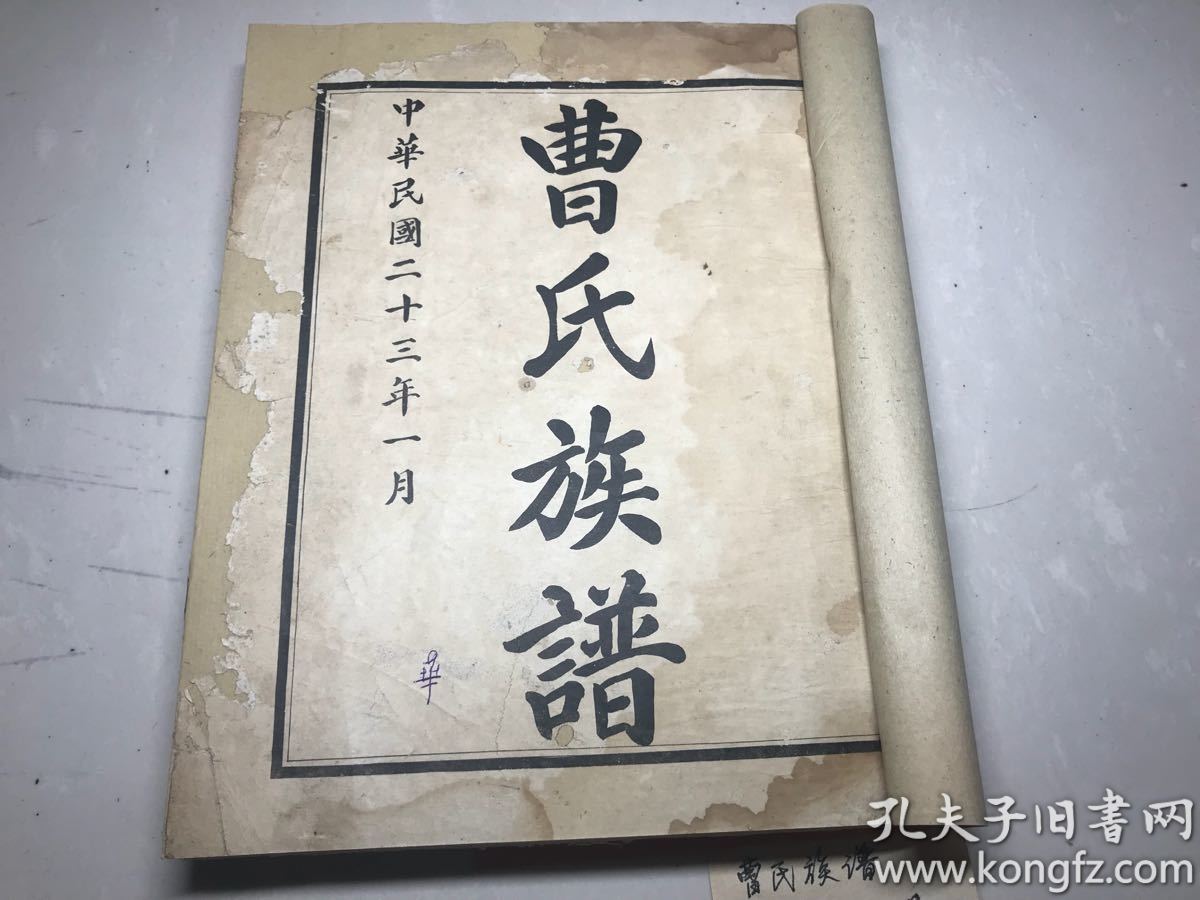 曹氏族譜
中華民國二十三年一月
華
孔夫子旧书网
www.kongfz.com
曹氏族谱